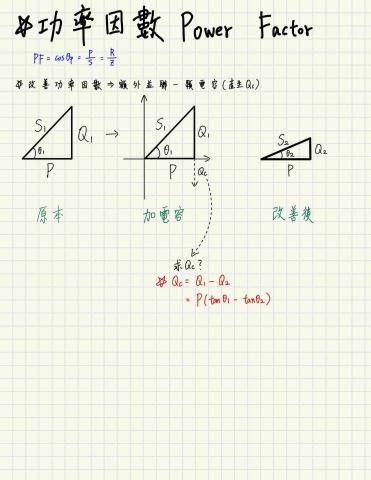 *功率因數 Power Factor
PF = cosθp = P/S = R/Z
*改善功率因數⇒額外並聯一顆電容(產生Qc)
S₁ θ₁ Q₁ P → S₁ θ₁ Q₁ P Qc S₂ θ₂ Q₂ P
原本 加電容 改善後
求Qc?
* Qc = Q₁ - Q₂
= P(tanθ₁ - tanθ₂)